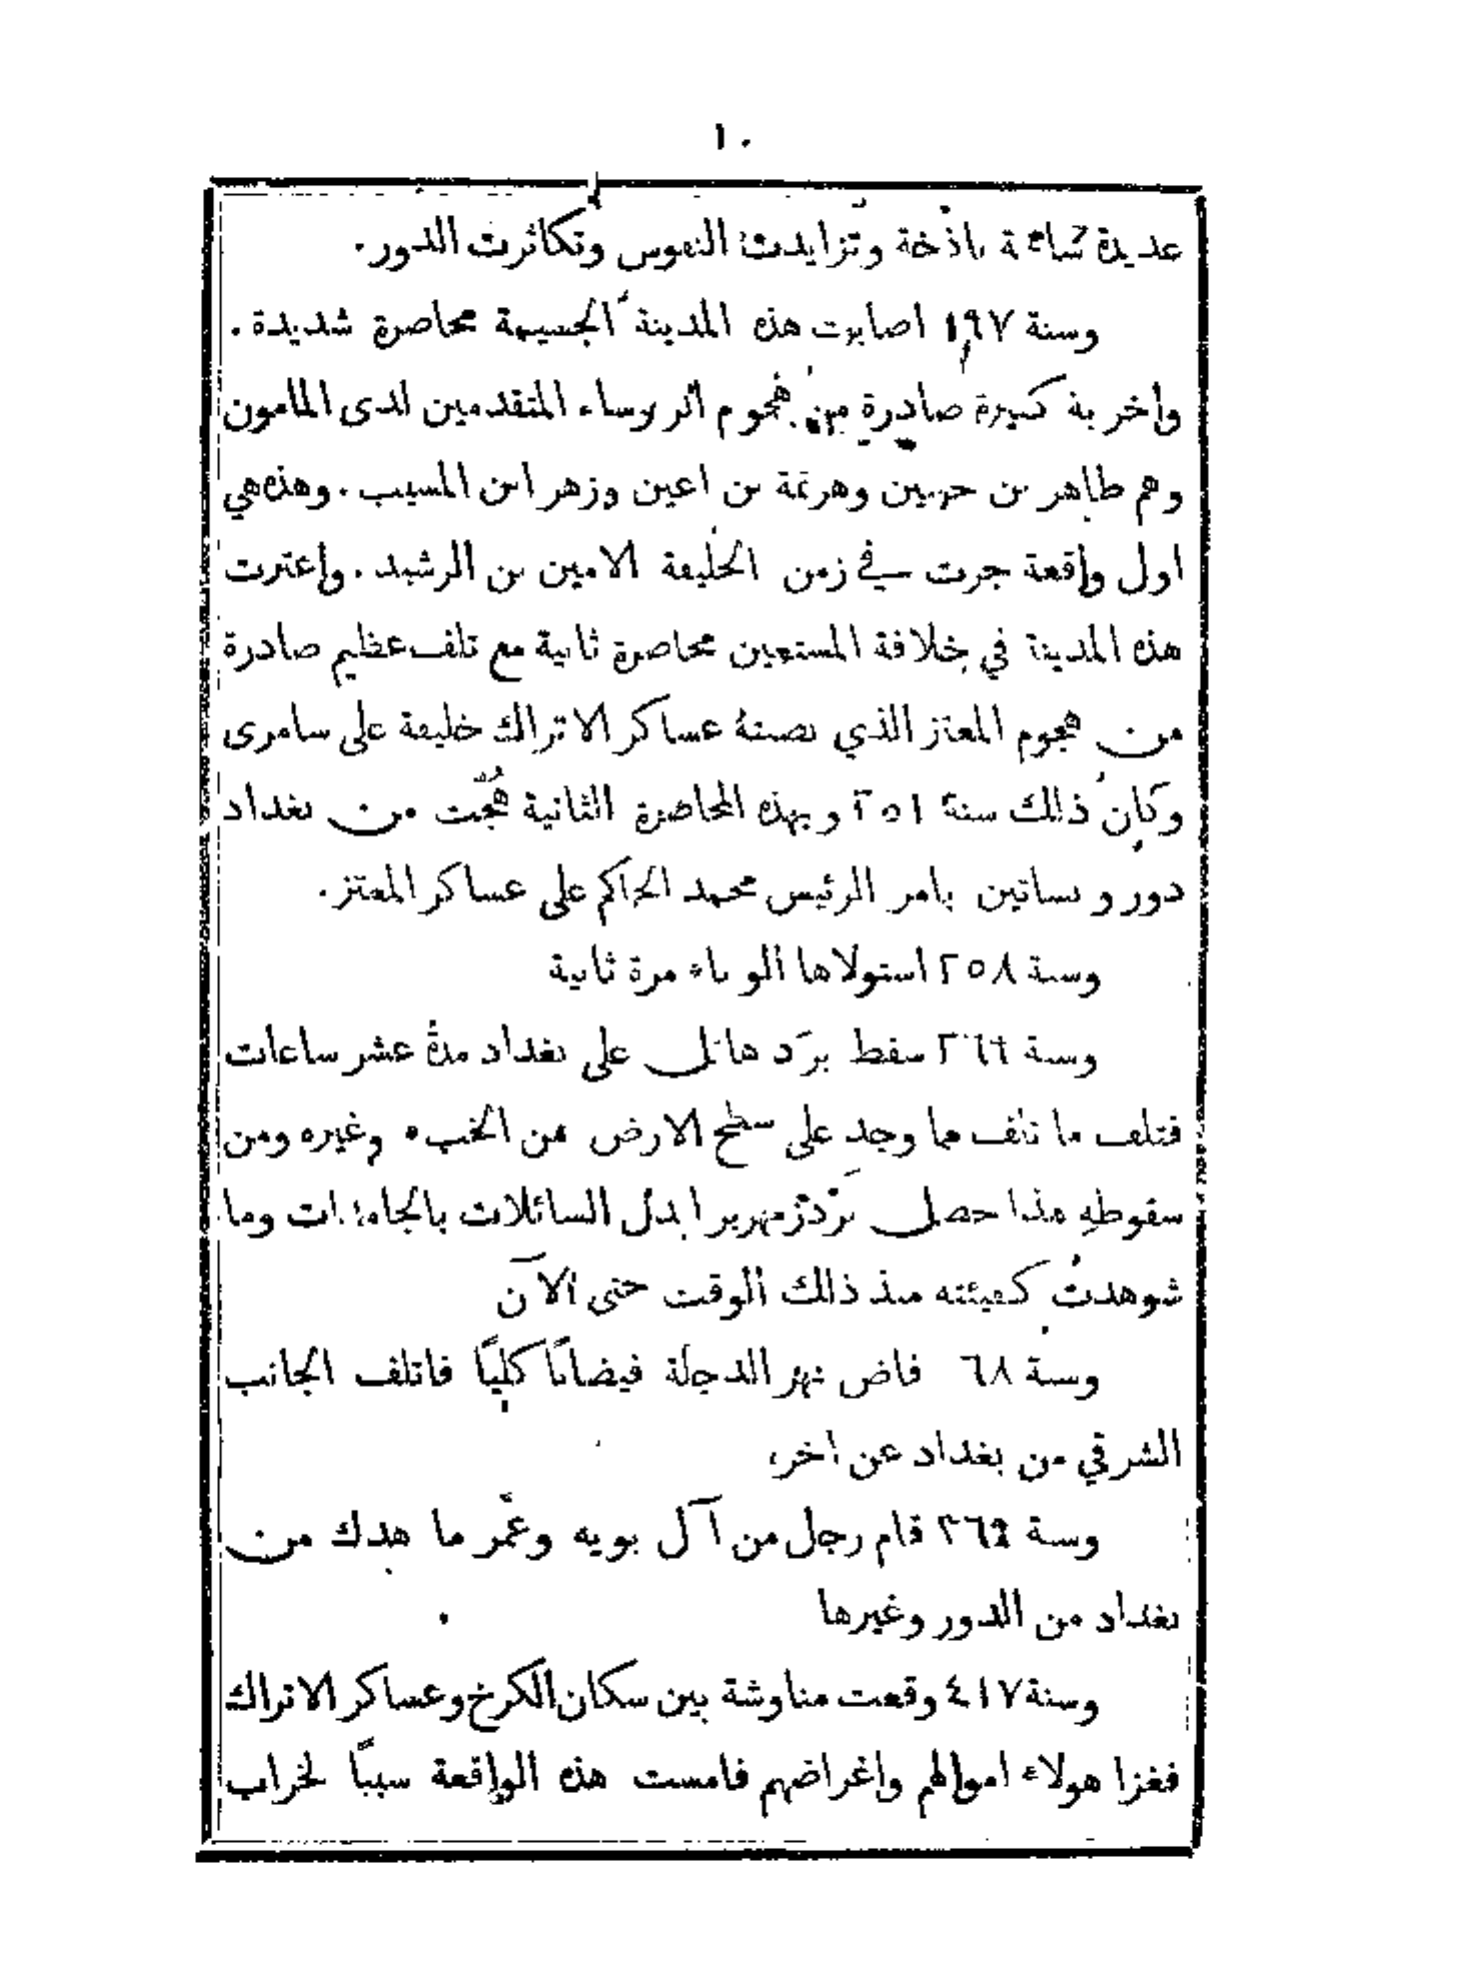 ١٠
عديدة شامخة باذخة وتزايدت النفوس وتكاثرت الدور.
وسنة ١٩٧ اصابت هذه المدينة الجسيمة محاصرة شديدة.
واخربة كبيرة صادرة من هجوم الروساء المتقدمين لدى المامون
وهم طاهر بن حسين وهرثمة بن اعين وزهر ابن المسيب. وهذه هي
اول واقعة جرت في زمن الخليفة الامين بن الرشيد. واعترت
هذه المدينة في خلافة المستعين محاصرة ثانية مع تلف عظيم صادرة
من هجوم المعتز الذي نصبته عساكر الاتراك خليفة على سامرى
وكان ذلك سنة ٢٥١ وبهذه المحاصرة الثانية هُجّت من بغداد
دور وبساتين بامر الرئيس محمد الحاكم على عساكر المعتز.
وسنة ٢٥٨ استولاها الوباء مرة ثانية
وسنة ٢٦٦ سقط برَد هائل على بغداد مدة عشر ساعات
فتلف ما تلف مما وجد على سطح الارض من وغيره ومن
سقوطهِ هذا حصل بَرْد زمهرير ابدل السائلات بالجامدات وما
شوهدت كهيئته منذ ذلك الوقت حتى الآن
وسنة فاض نهر الدجلة فيضانًا كليًا فاتلف الجانب
الشرقي من بغداد عن اخره
وسنة قام رجل من آل بويه وعمَّر ما هدك من
بغداد من الدور وغيرها
وسنة ٤١٧ وقعت مناوشة بين سكان الكرخ وعساكر الاتراك
فغزا هولاء اموالهم واغراضهم فامست هذه الواقعة سببًا لخراب